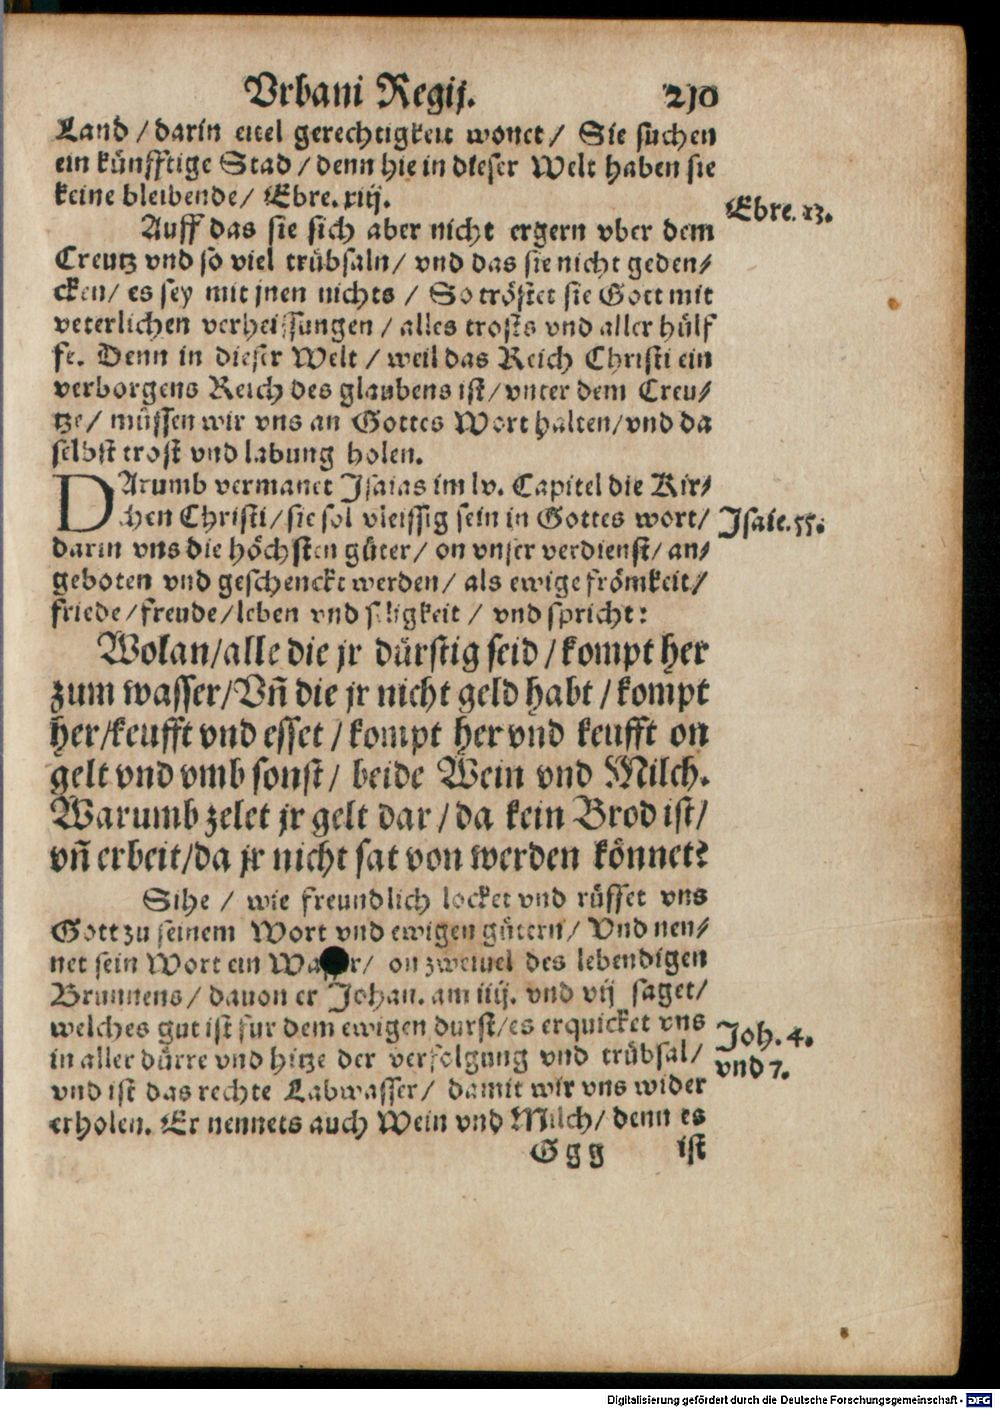 Vrbani Regij. 210
Land / darin eitel gerechtigkeit wonet / Sie suchen
ein künfftige Stad / denn hie in dieser Welt haben sie
keine bleibende / Ebre. xiij.
Ebre. 13.
Auff das sie sich aber nicht ergern vber dem
Creutz vnd so viel trübsaln / vnd das sie nicht geden/
cken / es sey mit jnen nichts / So tröstet sie Gott mit
veterlichen verheissungen / alles trosts vnd aller hülf
fe. Denn in dieser Welt / weil das Reich Christi ein
verborgens Reich des glaubens ist / vnter dem Creu/
tze / müssen wir vns an Gottes Wort halten / vnd da
selbst trost vnd labung holen.
DArumb vermanet Jsaias im lv. Capitel die Kir/
chen Christi / sie sol vleissig sein in Gottes wort /
Jsaie. 55.
darin vns die höchsten güter / on vnser verdienst / an/
geboten vnd geschenckt werden / als ewige frömkeit /
friede / freude / leben vnd seligkeit / vnd spricht:
Wolan / alle die jr dürstig seid / kompt her
zum wasser / Vñ die jr nicht geld habt / kompt
her / keufft vnd esset / kompt her vnd keufft on
gelt vnd vmb sonst / beide Wein vnd Milch.
Warumb zelet jr gelt dar / da kein Brod ist /
vñ erbeit / da jr nicht sat von werden könnet?
Sihe / wie freundlich locket vnd rüffet vns
Gott zu seinem Wort vnd ewigen gütern / Vnd nen/
net sein Wort ein Wasser / on zweiuel des lebendigen
Brunnens / dauon er Johan. am iiij. vnd vij saget /
welches gut ist fur dem ewigen durst / es erquicket vns
Joh. 4.
in aller dürre vnd hitze der verfolgung vnd trübsal /
vnd 7.
vnd ist das rechte Labwasser / damit wir vns wider
erholen. Er nennets auch Wein vnd Milch / denn es
Ggg ist
Digitalisierung gefördert durch die Deutsche Forschungsgemeinschaft - DFG